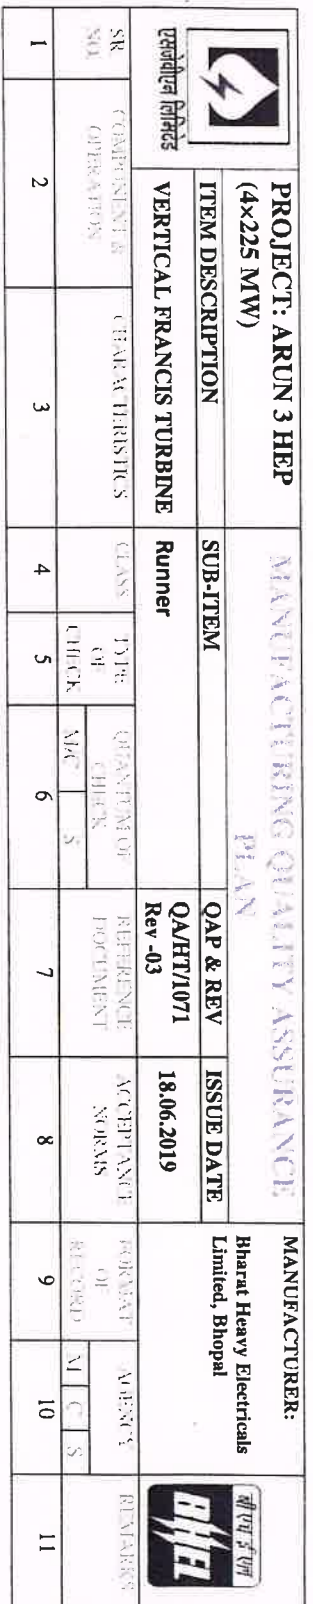 एसजेवीएन लिमिटेड
PROJECT: ARUN 3 HEP
(4×225 MW)
MANUFACTURING QUALITY ASSURANCE
PLAN
MANUFACTURER:
Bharat Heavy Electricals
Limited, Bhopal
बी एच ई एल
BHEL
ITEM DESCRIPTION
SUB-ITEM
QAP & REV
ISSUE DATE
VERTICAL FRANCIS TURBINE
Runner
QA/HT/1071
Rev -03
18.06.2019
SR
NO.
COMPONENT &
OPERATION
CHARACTERISTICS
CLASS
TYPE
OF
CHECK
QUANTUM OF
CHECK
M/C
S
REFERENCE
DOCUMENT
ACCEPTANCE
NORMS
FORMAT
OF
RECORD
AGENCY
M C S
REMARKS
1 2 3 4 5 6 7 8 9 10 11